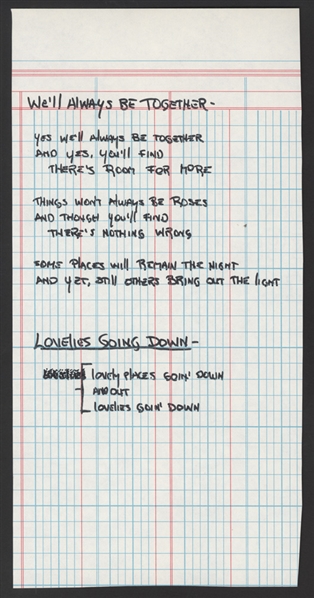 We'll Always Be Together -
Yes we'll always be together
And yes, you'll find
There's room for more
Things won't always be roses
And though you'll find
There's nothing wrong
Some places will remain the night
And yet, still others bring out the light
Lovelies Going Down -
lovely places goin' down
and out
lovelies goin' down